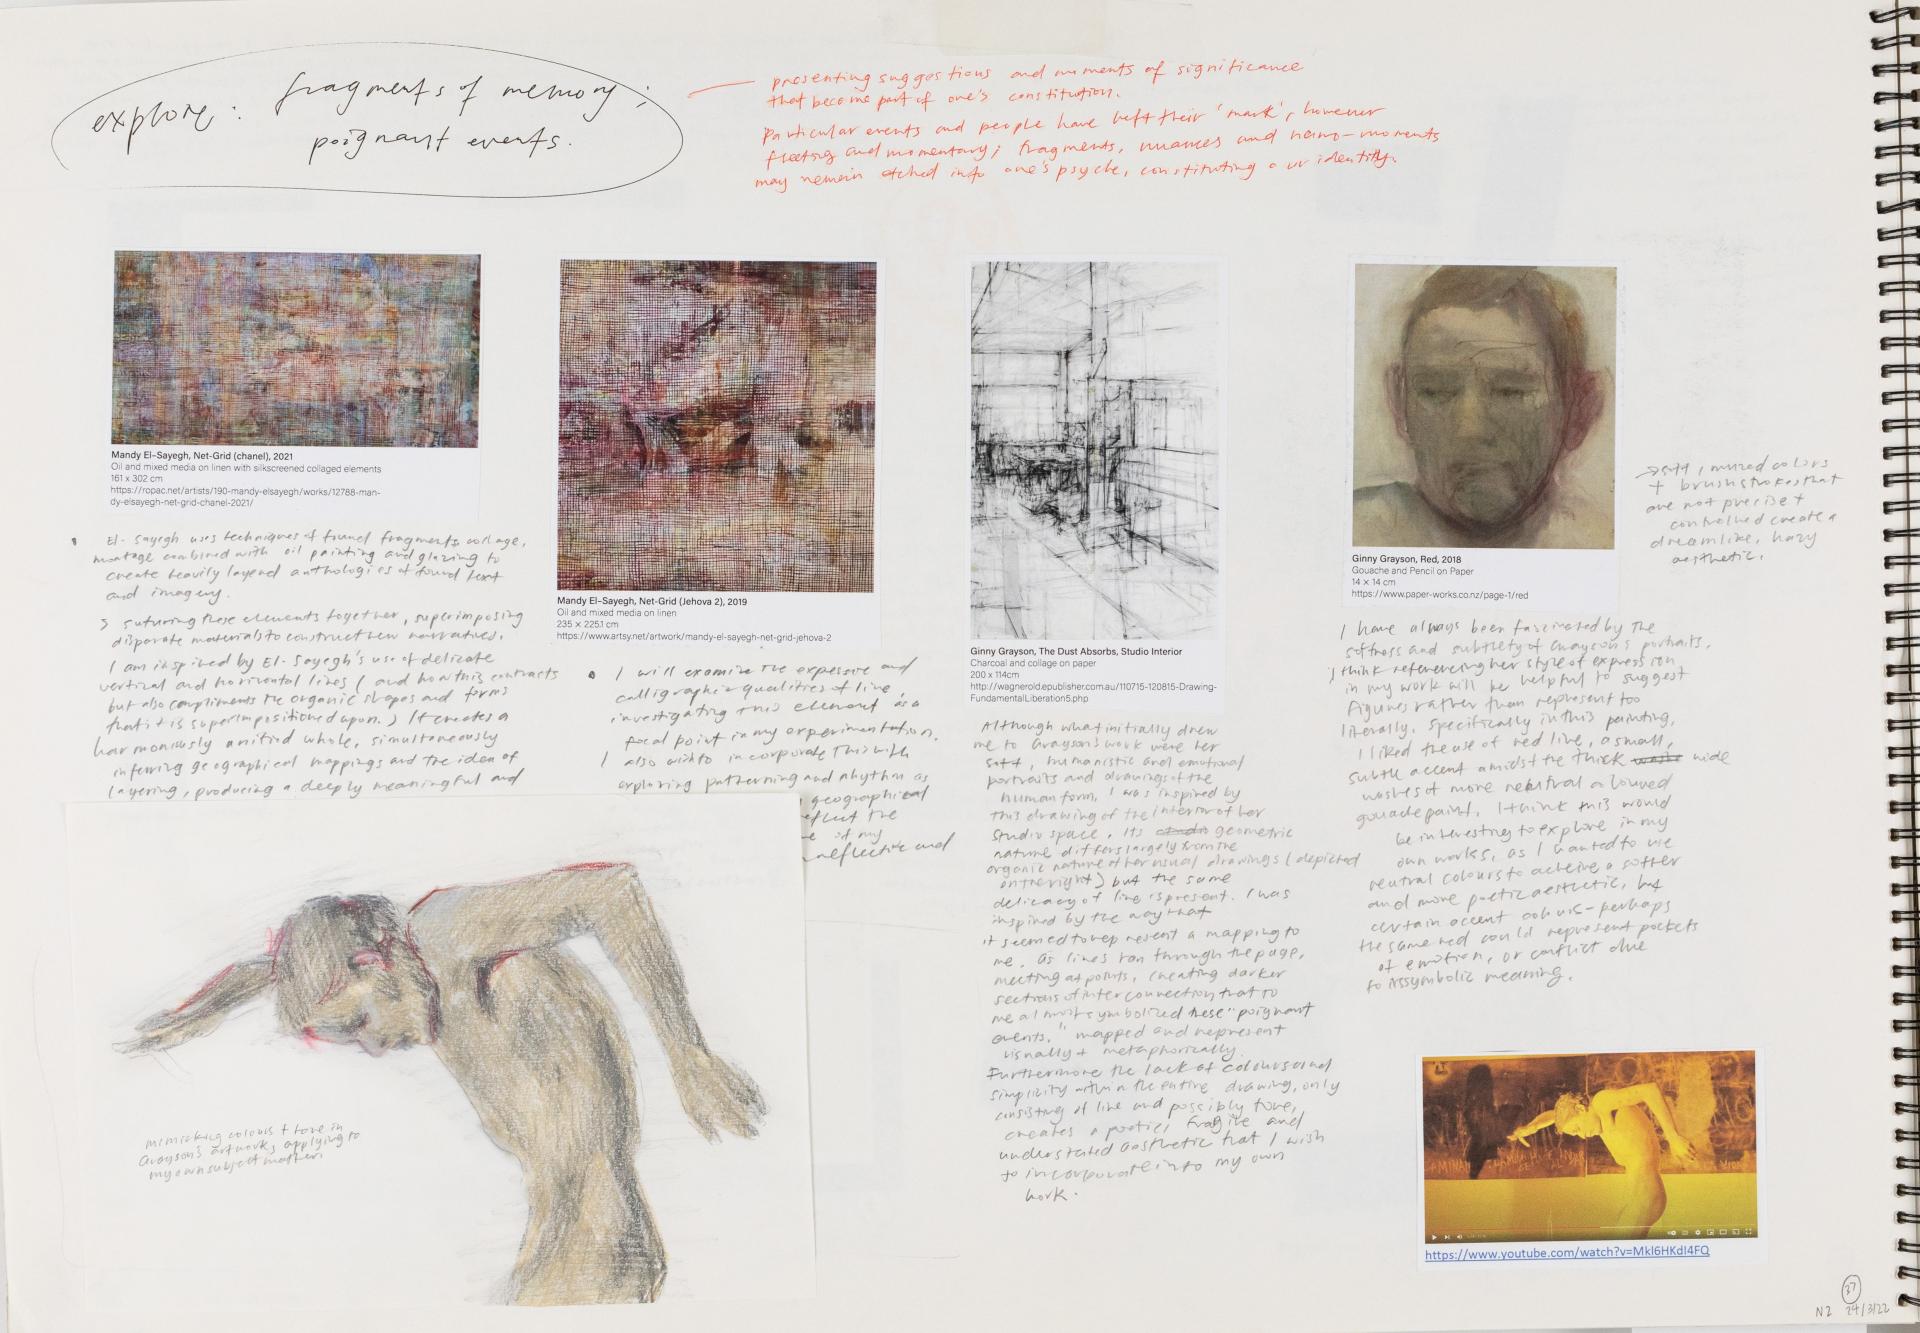 explore: fragments of memory;
poignant events.
presenting suggestions and moments of significance
that become part of one's constitution.
particular events and people have left their 'mark', however
fleeting and momentary; fragments, nuances and nano-moments
may remain etched into one's psyche, constituting our identity.
Mandy El-Sayegh, Net-Grid (chanel), 2021
Oil and mixed media on linen with silkscreened collaged elements
161 x 302 cm
https://ropac.net/artists/190-mandy-elsayegh/works/12788-man-
dy-elsayegh-net-grid-chanel-2021/
El-Sayegh uses techniques of found fragments, collage,
montage combined with oil painting and glazing to
create heavily layered anthologies of found text
and imagery.
suturing these elements together, superimposing
disparate materials to construct new narratives.
I am inspired by El-Sayegh's use of delicate
vertical and horizontal lines (and how this contracts
but also compliments the organic shapes and forms
that it is superimpositioned upon.) It creates a
harmoniously unified whole, simultaneously
inferring geographical mappings and the idea of
layering, producing a deeply meaningful and
Mandy El-Sayegh, Net-Grid (Jehova 2), 2019
Oil and mixed media on linen
235 × 225.1 cm
https://www.artsy.net/artwork/mandy-el-sayegh-net-grid-jehova-2
I will examine the expessive and
calligraphic qualities of line,
investigating this element as a
focal point in my experimentation.
I also wish to incorporate this with
exploring patterning and rhythm as
geographical
reflect the
of my
reflective and
Ginny Grayson, The Dust Absorbs, Studio Interior
Charcoal and collage on paper
200 x 114cm
http://wagnerold.epublisher.com.au/110715-120815-Drawing-
FundamentalLiberation5.php
Although what initially drew
me to Grayson's work were her
soft, humanistic and emotional
portraits and drawings of the
human form, I was inspired by
this drawing of the interior of her
studio space. Its geometric
nature differs largely from the
organic nature of her usual drawings (depicted
on the right) but the same
delicacy of line is present. I was
inspired by the way that
it seemed to represent a mapping to
me. As lines ran through the page,
meeting at points, creating darker
sections of interconnection that to
me almost symbolized these "poignant
events," mapped and represent
visually + metaphorically.
Furthermore the lack of colours and
simplicity within the entire drawing, only
consisting of line and possibly tone,
creates a poetic, fragile and
understated aesthetic that I wish
to incorporate into my own
work.
Ginny Grayson, Red, 2018
Gouache and Pencil on Paper
14 × 14 cm
https://www.paper-works.co.nz/page-1/red
→ soft, muted colors
+ brushstrokes that
are not precise +
controlled create a
dreamlike, hazy
aesthetic.
I have always been fascinated by the
softness and subtlety of Grayson's portraits.
I think referencing her style of expression
in my work will be helpful to suggest
figures rather than represent too
literally. Specifically in this painting,
I liked the use of red line, a small,
subtle accent amidst the thick wide
washes of more neutral coloured
gouache paint. I think this would
be interesting to explore in my
own works, as I wanted to use
neutral colours to acheive a softer
and more poetic aesthetic, but
certain accent colours - perhaps
the same red could represent pockets
of emotion, or conflict due
to its symbolic meaning.
mimicking colours + tone in
Grayson's artworks, applying to
my own subject matter.
https://www.youtube.com/watch?v=Mkl6HKdI4FQ
37
N2 24/3/22